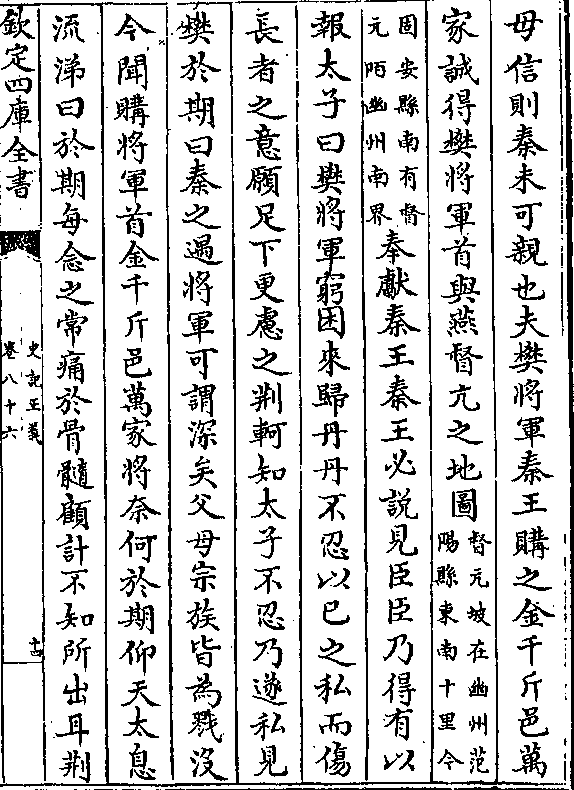 毋信則秦未可親也夫樊將軍秦王購之金千斤邑萬
家誠得樊將軍首與燕督亢之地圖督亢坡在幽州范陽縣東南十里今
固安縣南有督亢陌幽州南界奉獻秦王秦王必說見臣臣乃得有以
報太子曰樊將軍窮困來歸丹丹不忍以已之私而傷
長者之意願足下更慮之荆軻知太子不忍乃遂私見
樊於期曰秦之遇將軍可謂深矣父母宗族皆為戮沒
今聞購將軍首金千斤邑萬家將奈何於期仰天太息
流涕曰於期每念之常痛於骨髓顧計不知所出耳荆
欽定四庫全書
史記正義
卷八十六
十四